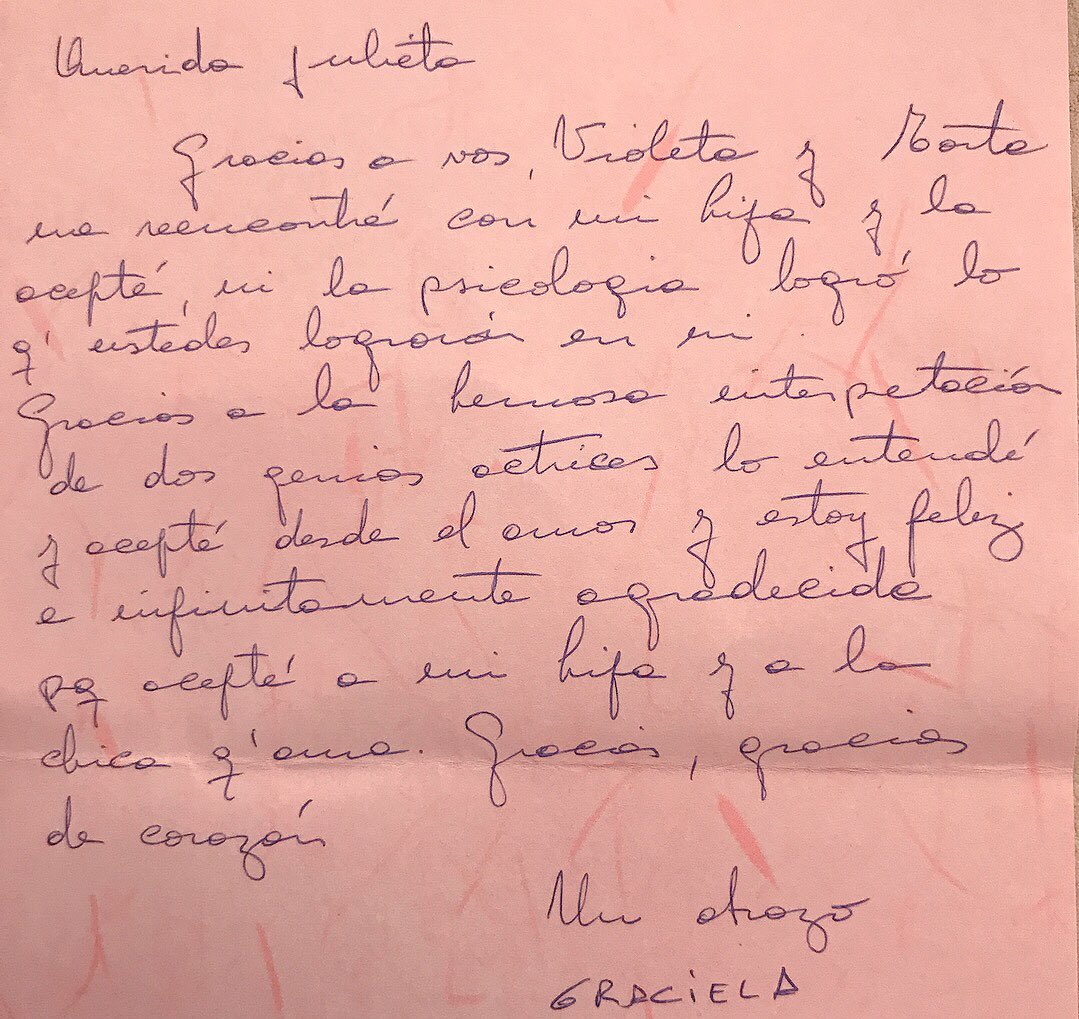 Querida Julieta
Gracias a vos, Violeta y Marta
me reencontré con mi hija y la
acepté, ni la psicologia logró lo
q' ustedes lograrón en mi.
Gracias a la hermosa interpetación
de dos genias actrices lo entendé
y acepté desde el amor y estoy feliz
e infinitamente agradecida
pq acepté a mi hija y a la
chica q' ama. Gracias, gracias
de corazón
Un abrazo
GRACIELA